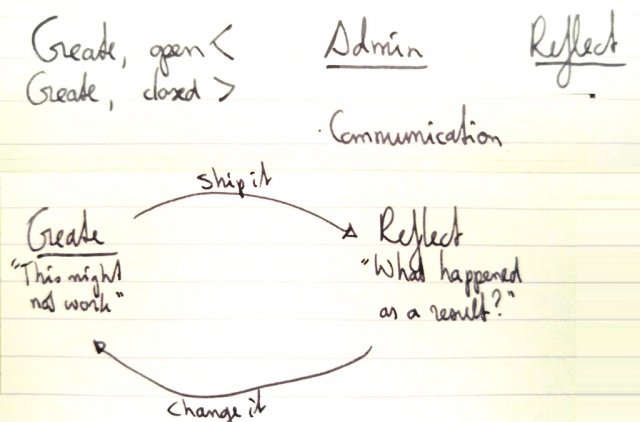 Create, open <
Admin
Reflect
Create, closed >
Communication
Ship it
Create
Reflect
"This might
not work"
"What happened
as a result?"
Change it